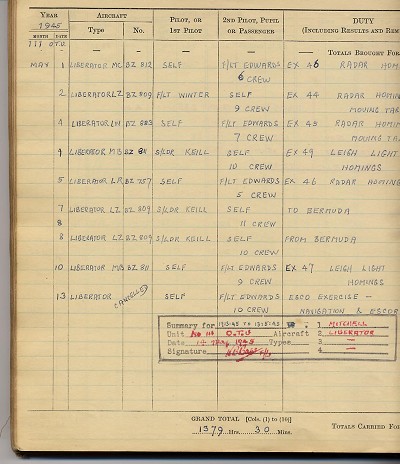 YEAR AIRCRAFT PILOT, OR 2ND PILOT, PUPIL DUTY
1945 Type No. 1ST PILOT OR PASSENGER (INCLUDING RESULTS AND REM
MONTH DATE
111 O.T.U. — — — — — TOTALS BROUGHT FOR
MAY 1 LIBERATOR MC BZ 812 SELF F/LT EDWARDS EX 46 RADAR HOMI
6 CREW
2 LIBERATOR LZ BZ 809 F/LT WINTER SELF EX 44 RADAR HOMIN
9 CREW MOVING TAR
4 LIBERATOR BZ 883 SELF F/LT EDWARDS EX 45 RADAR HOMIN
7 CREW MOVING TAR
4 LIBERATOR MB BZ 811 S/LDR KEILL SELF EX 49 LEIGH LIGHT
10 CREW HOMINGS
5 LIBERATOR LR BZ 757 SELF F/LT EDWARDS EX 46 RADAR HOMING
5 CREW
7 LIBERATOR LZ BZ 809 S/LDR KEILL SELF TO BERMUDA
8 11 CREW
8 LIBERATOR LZ BZ 809 S/LDR KEILL SELF FROM BERMUDA
10 CREW
10 LIBERATOR MB BZ 811 SELF F/LT EDWARDS EX 47 LEIGH LIGHT
9 CREW HOMINGS
13 LIBERATOR CANCELLED SELF F/LT EDWARDS ESCO EXERCISE –
10 CREW NAVIGATION & ESCOR
Summary for 1 MITCHELL
Unit No 111 O.T.U. Aircraft 2 LIBERATOR
Date May 1945 Types 3 —
Signature 4 —
GRAND TOTAL [Cols. (1) to (10)]
1379 Hrs. 30 Mins. TOTALS CARRIED FOR